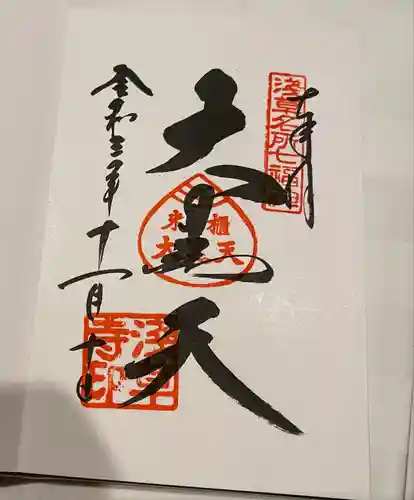 奉拝
浅草名所七福神
大黒天
令和三年
十一月十日
浅草
寺印